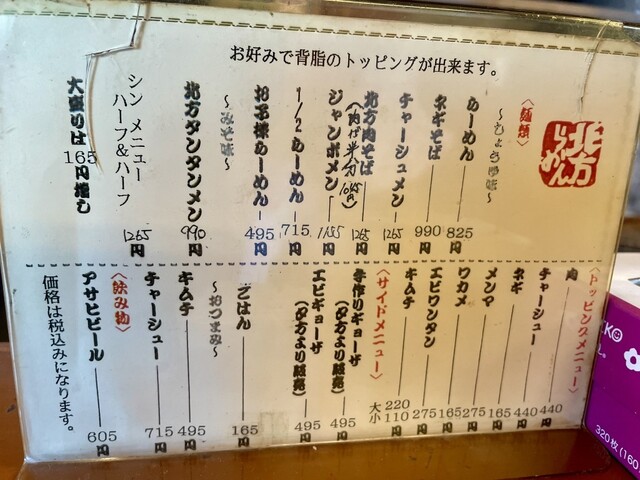 お好みで背脂のトッピングが出来ます。
北方らーめん
〈麺類〉
～しょうゆ味～
らーめん 825円
ネギそば 990円
チャーシュメン 1265円
北方肉そば 1265円
(肉が半分 1045円)
ジャンボメン 1155円
1/2らーめん 715円
お子様らーめん 495円
～みそ味～
北方タンタンメン 990円
シン メニュー
ハーフ&ハーフ 1265円
大盛りは165円増し
〈トッピングメニュー〉
肉 440円
チャーシュー 440円
ネギ 165円
メンマ 275円
ワカメ 165円
エビワンタン 275円
キムチ 大220 小110円
〈サイドメニュー〉
手作りギョーザ(夕方より販売) 495円
エビギョーザ(夕方より販売) 495円
ごはん 165円
～おつまみ～
キムチ 495円
チャーシュー 715円
〈飲み物〉
アサヒビール 605円
価格は税込みになります。
320枚(160